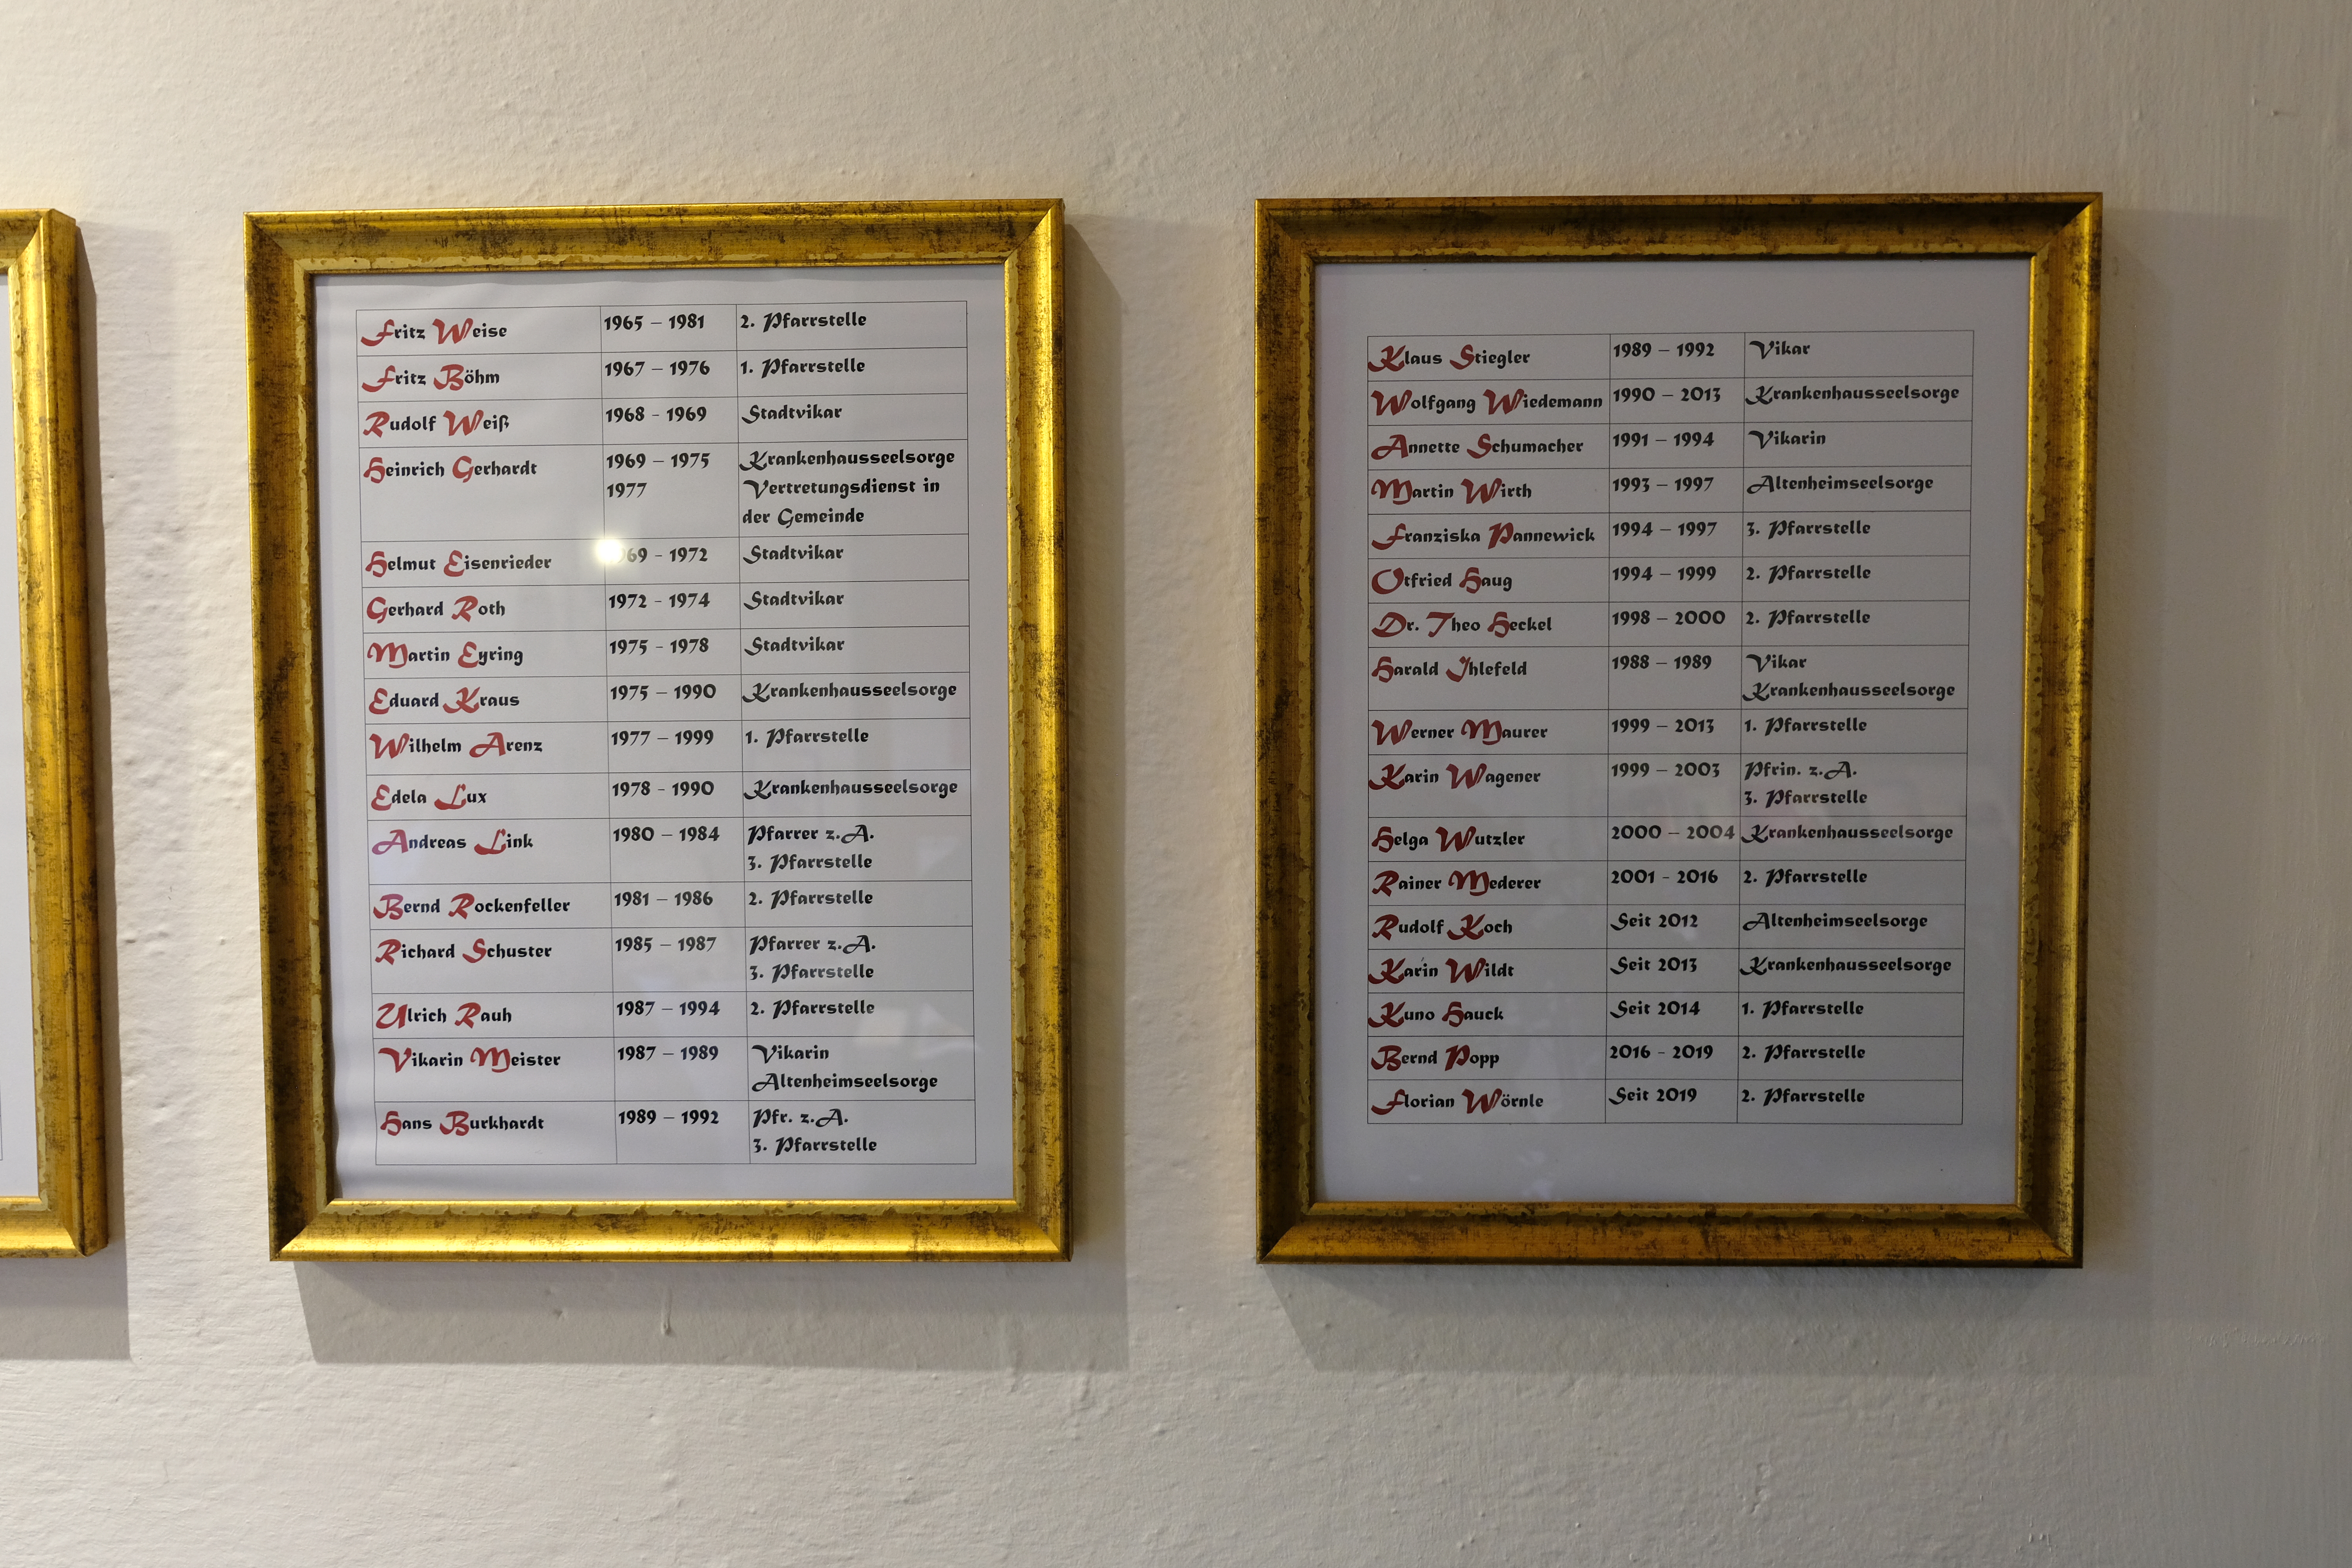 Fritz Weise 1965 – 1981 2. Pfarrstelle
Fritz Böhm 1967 – 1976 1. Pfarrstelle
Rudolf Weiß 1968 - 1969 Stadtvikar
Heinrich Gerhardt 1969 – 1975 Krankenhausseelsorge
1977 Vertretungsdienst in
der Gemeinde
Helmut Eisenrieder - 1972 Stadtvikar
Gerhard Roth 1972 - 1974 Stadtvikar
Martin Eyring 1975 - 1978 Stadtvikar
Eduard Kraus 1975 – 1990 Krankenhausseelsorge
Wilhelm Arenz 1977 – 1999 1. Pfarrstelle
Edela Lux 1978 - 1990 Krankenhausseelsorge
Andreas Link 1980 – 1984 Pfarrer z.A.
3. Pfarrstelle
Bernd Rockenfeller 1981 – 1986 2. Pfarrstelle
Richard Schuster 1985 – 1987 Pfarrer z.A.
3. Pfarrstelle
Ulrich Rauh 1987 – 1994 2. Pfarrstelle
Vikarin Meister 1987 – 1989 Vikarin
Altenheimseelsorge
Hans Burkhardt 1989 – 1992 Pfr. z.A.
3. Pfarrstelle
Klaus Stiegler 1989 – 1992 Vikar
Wolfgang Wiedemann 1990 – 2013 Krankenhausseelsorge
Annette Schumacher 1991 – 1994 Vikarin
Martin Wirth 1993 – 1997 Altenheimseelsorge
Franziska Pannewick 1994 – 1997 3. Pfarrstelle
Otfried Haug 1994 – 1999 2. Pfarrstelle
Dr. Theo Heckel 1998 – 2000 2. Pfarrstelle
Harald Ihlefeld 1988 – 1989 Vikar
Krankenhausseelsorge
Werner Maurer 1999 – 2013 1. Pfarrstelle
Karin Wagener 1999 – 2003 Pfrin. z.A.
3. Pfarrstelle
Helga Wutzler 2000 – 2004 Krankenhausseelsorge
Rainer Mederer 2001 - 2016 2. Pfarrstelle
Rudolf Koch Seit 2012 Altenheimseelsorge
Karin Wildt Seit 2013 Krankenhausseelsorge
Kuno Hauck Seit 2014 1. Pfarrstelle
Bernd Popp 2016 - 2019 2. Pfarrstelle
Florian Wörnle Seit 2019 2. Pfarrstelle